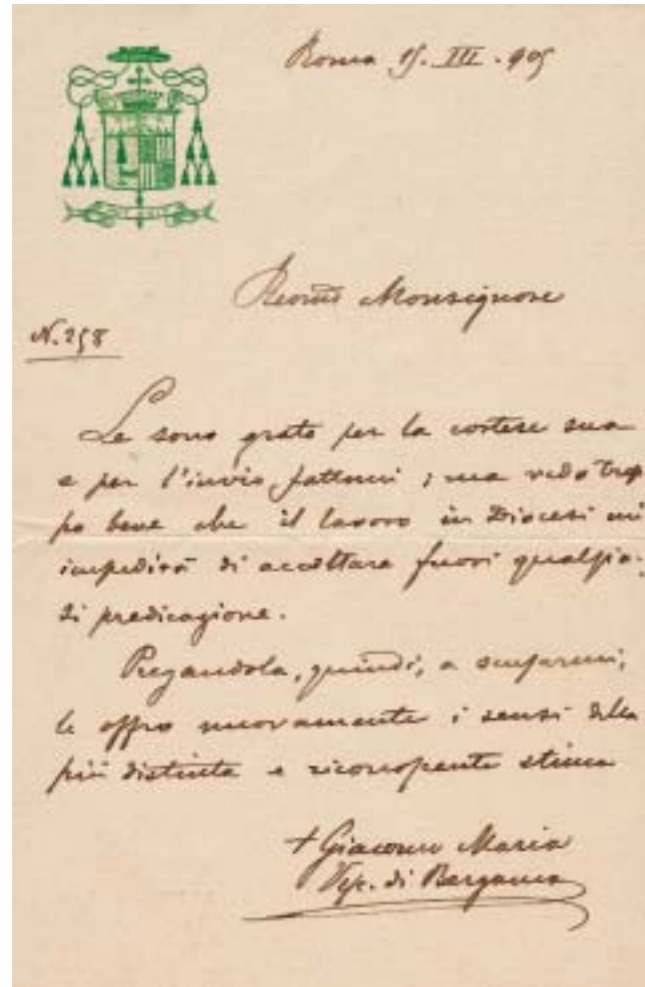 Roma 15. III. 905
Revmo Monsignore
N. 258
Le sono grato per la cortese sua
e per l'invio fattomi; ma vedo trop
po bene che il lavoro in Diocesi mi
impedirà di accettare fuori qualsia-
si predicazione.
Pregandola, quindi, a scusarmi,
le offro nuovamente i sensi della
più distinta e riconoscente stima
+ Giacomo Maria
Vesc. di Bergamo